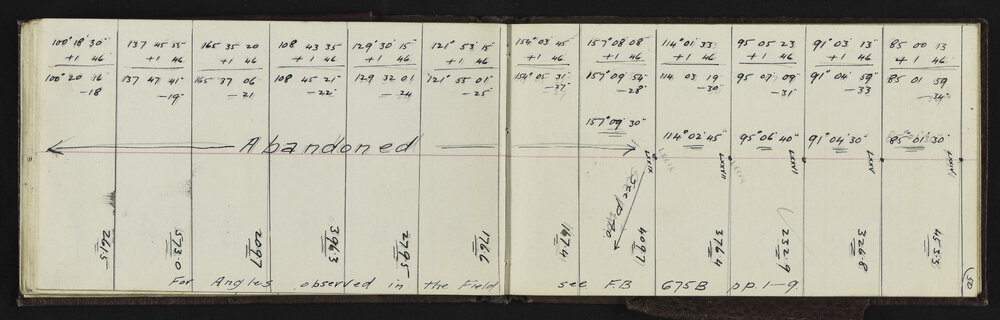 100° 18' 30" 137 45 55 165 35 20 108 43 35 129° 30 15 121° 53 15 154° 03 45 157° 08 08 114° 01 33 95 05 23 91° 03 13 85 00 13
+1 46 +1 46 +1 46 +1 46 +1 46 +1 46 +1 46 +1 46 +1 46 +1 46 +1 46 +1 46
100° 20 16 137 47 41 165 37 06 108 45 21 129 32 01 121° 55 01 154° 05 31 157° 09 54 114 03 19 95 07 09 91° 04 59 85 01 59
-18 -19 -21 -22 -24 -25 -27 -28 -30 -31 -33 -34
157° 09' 30" 114° 02' 45" 95° 06' 40" 91° 04' 30" 85° 01' 30"
Abandoned
LXXIX
see p 270
2615 573.0 2097 396.3 2795 1766 1674 4097 3764 232.9 326.8 453.3
For Angles observed in the Field see F.B 675B pp. 1-9.
50